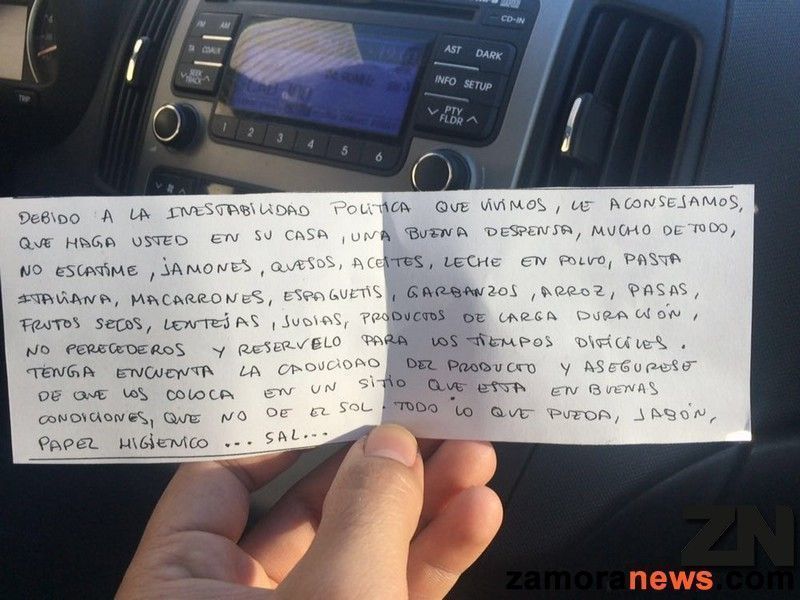 CD-IN
FM AM
TA CDAUX
SEEK
TRACK
AST DARK
INFO SETUP
PTY
FLDR
1 2 3 4 5 6
TRIP
DEBIDO A LA INESTABILIDAD POLITICA QUE VIVIMOS, LE ACONSEJAMOS,
QUE HAGA USTED EN SU CASA, UNA BUENA DESPENSA, MUCHO DE TODO,
NO ESCATIME, JAMONES, QUESOS, ACEITES, LECHE EN POLVO, PASTA
ITALIANA, MACARRONES, ESPAGUETIS, GARBANZOS, ARROZ, PASAS,
FRUTOS SECOS, LENTEJAS, JUDIAS, PRODUCTOS DE LARGA DURACIÓN,
NO PERECEDEROS Y RESERVELO PARA LOS TIEMPOS DIFICILES.
TENGA ENCUENTA LA CADUCIDAD DEL PRODUCTO Y ASEGURESE
DE QUE LOS COLOCA EN UN SITIO QUE ESTA EN BUENAS
CONDICIONES, QUE NO DE EL SOL. TODO LO QUE PUEDA, JABÓN,
PAPEL HIGIENICO ... SAL...
ZN
zamoranews.com